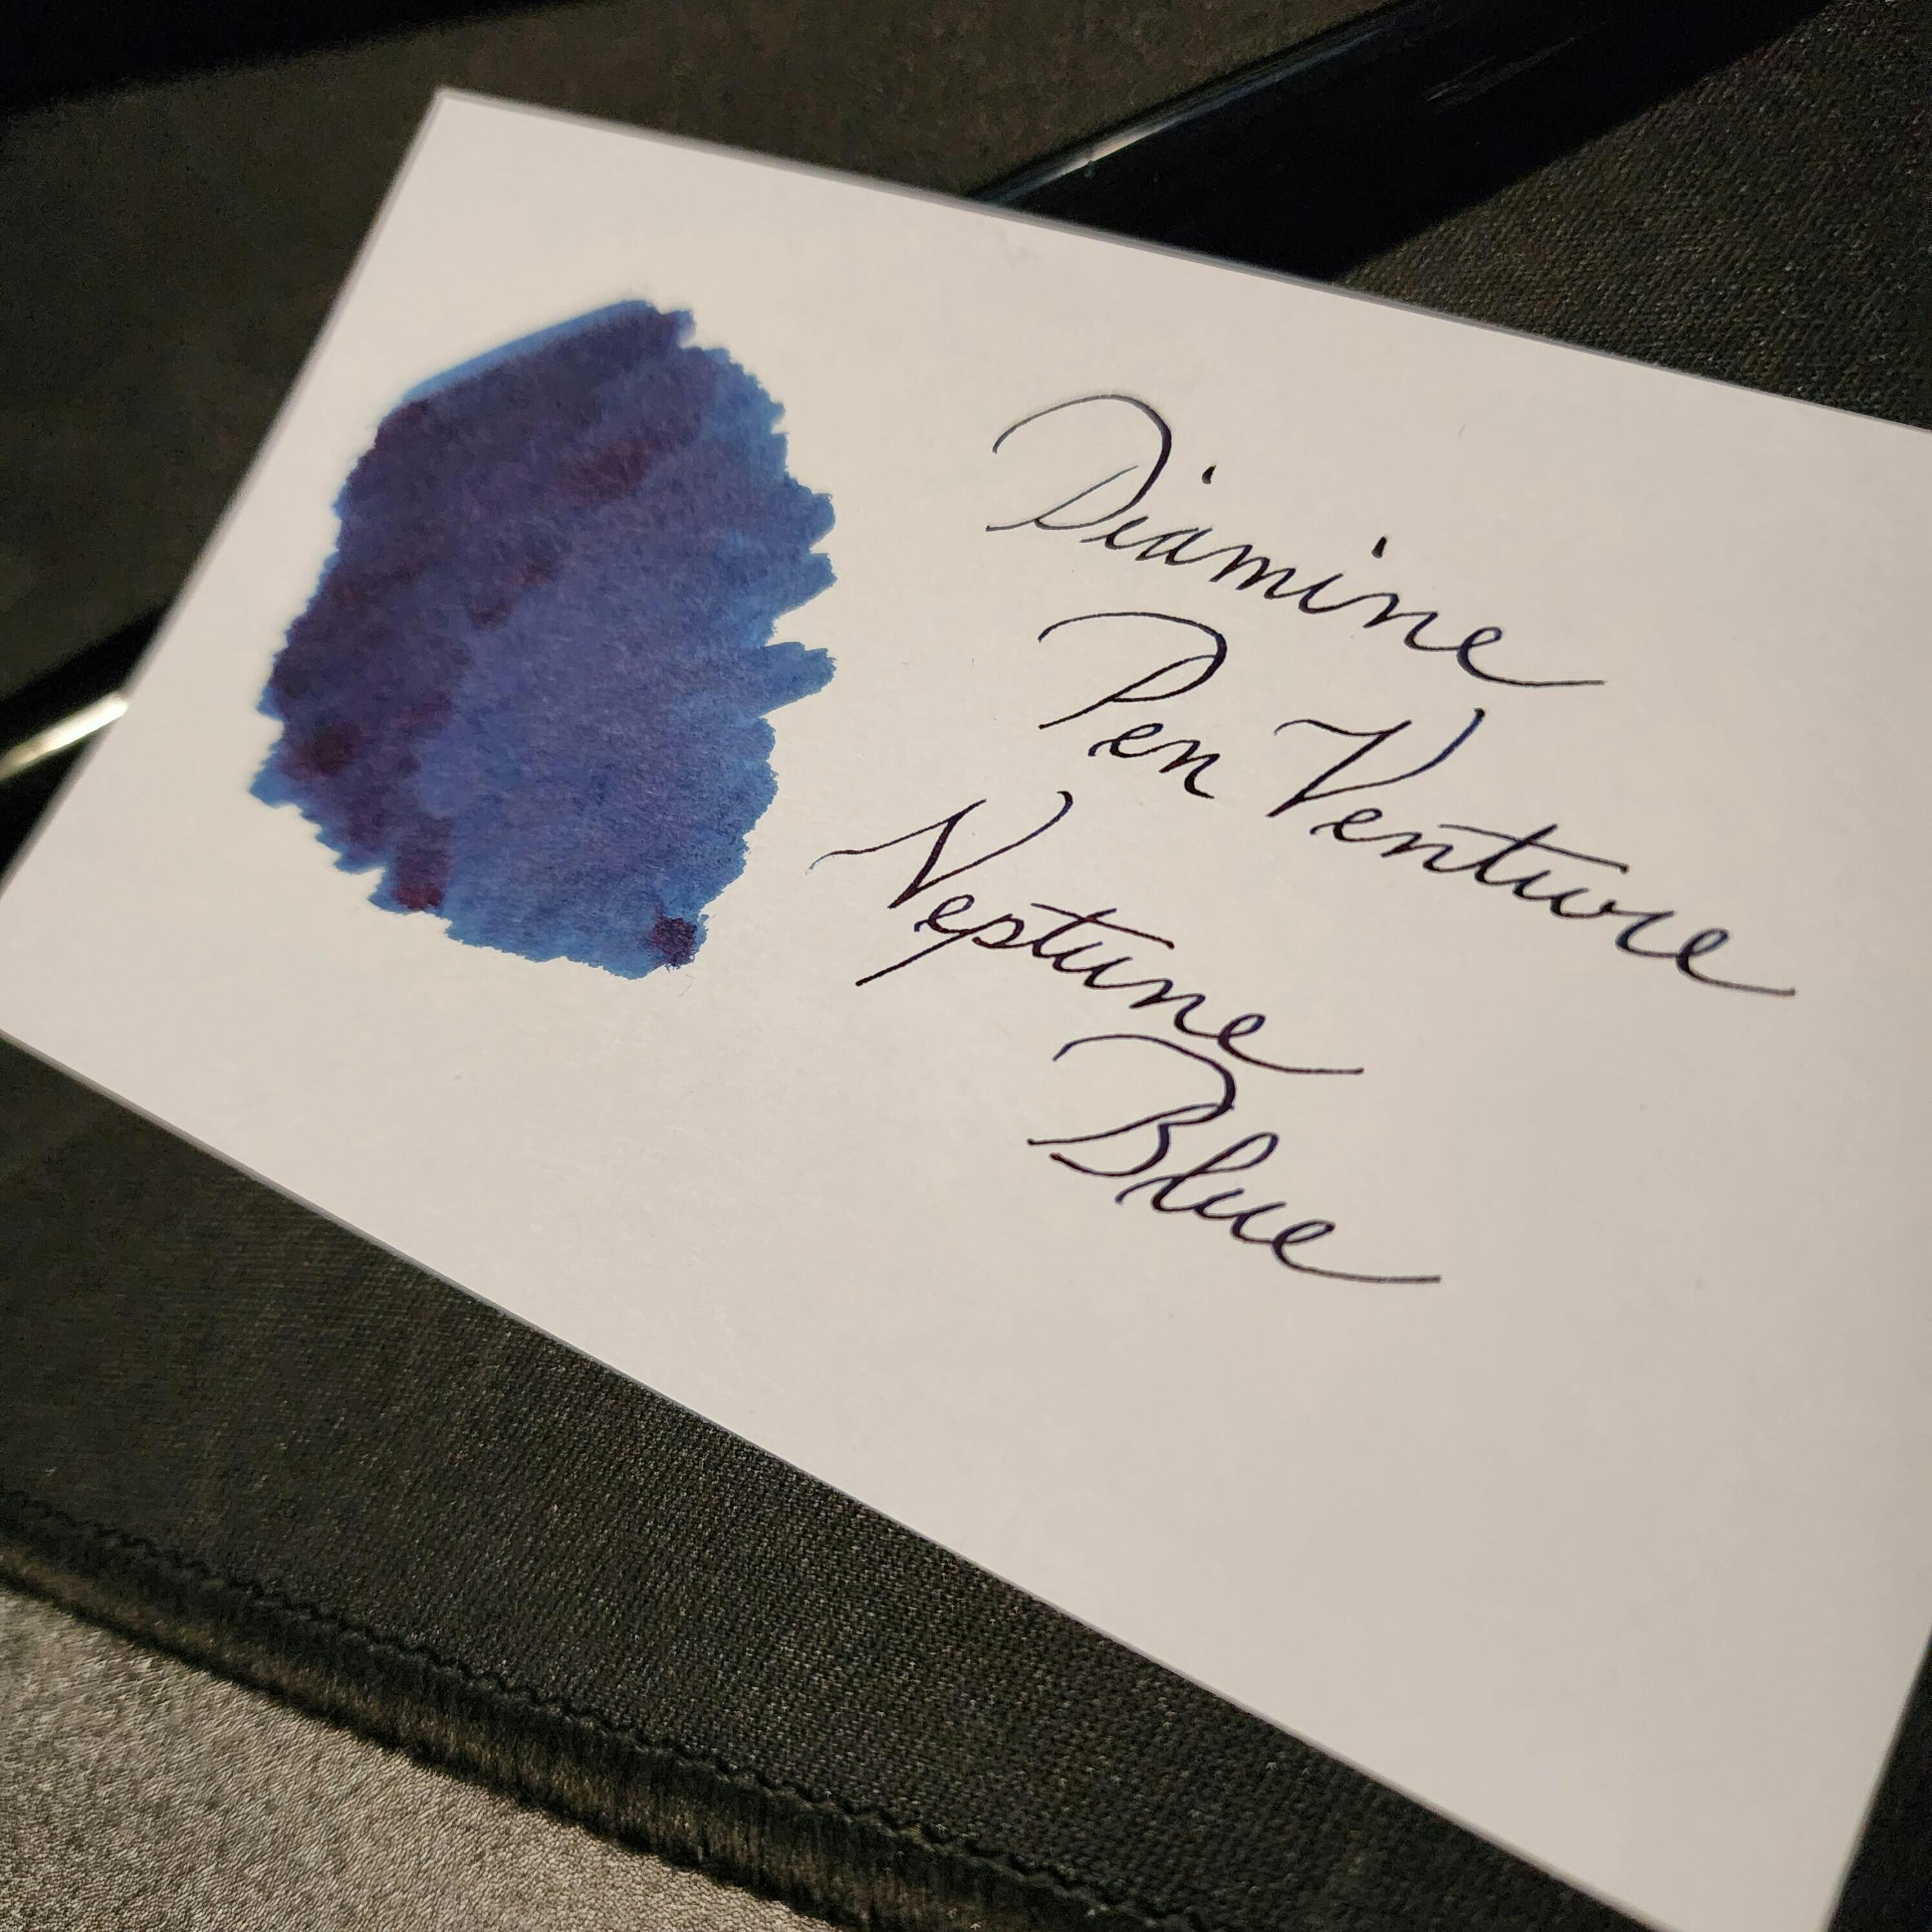 Diamine
Pen Venture
Neptune
Blue